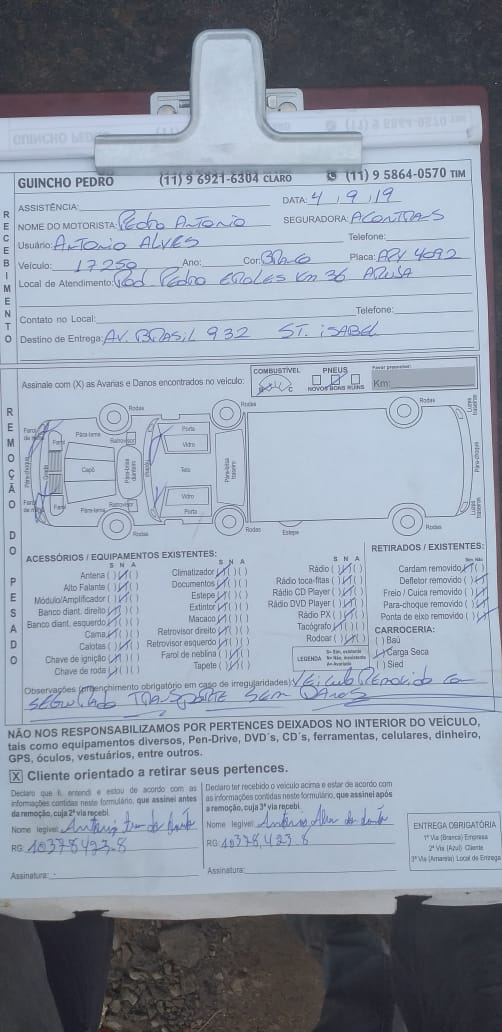 GUINCHO PEDRO (11) 9 6921-6304 CLARO (11) 9 5864-0570 TIM
RECEBIMENTO
ASSISTÊNCIA: DATA: 4/9/19
NOME DO MOTORISTA: Pedro Antonio SEGURADORA:
Usuário: Antonio ALVES Telefone:
Veículo: 17250 Ano: Cor: Branco Placa: 4092
Local de Atendimento: Rod. Pedro EROLES Km 36 ARUJA
Contato no Local: Telefone:
Destino de Entrega: AV. BRASIL 932 ST. iSABEL
REMOÇÃO DO PESADO
Assinale com (X) as Avarias e Danos encontrados no veículo:
COMBUSTÍVEL
PNEUS
NOVOS BONS RUINS
Km:
Rodas
Rodas
Rodas
Para-lama
Retrovisor
Porta
Vidro
Farol
Capô
Teto
Farol
Vidro
Retrovisor
Porta
Rodas
Rodas
Estepe
Rodas
ACESSÓRIOS / EQUIPAMENTOS EXISTENTES:
S N A
Antena
Alto Falante
Módulo/Amplificador
Banco diant. direito
Banco diant. esquerdo
Cama
Calotas
Chave de ignição
Chave de roda
S N A
Climatizador
Documentos
Estepe
Extintor
Macaco
Retrovisor direito
Retrovisor esquerdo
Farol de neblina
Tapete
S N A
Rádio
Rádio toca-fitas
Rádio CD Player
Rádio DVD Player
Rádio PX
Tacógrafo
Rodoar
LEGENDA
S= Sim, existente
N= Não, inexistente
A= Avariado
RETIRADOS / EXISTENTES:
Sim Não
Cardam removido
Defletor removido
Freio / Cuica removido
Para-choque removido
Ponta de eixo removido
CARROCERIA:
( ) Baú
Carga Seca
( ) Sied
Observações (preenchimento obrigatório em caso de irregularidades): Veiculo Removido com
SEGUNDO TRANSPORTE SEM DANOS
NÃO NOS RESPONSABILIZAMOS POR PERTENCES DEIXADOS NO INTERIOR DO VEÍCULO,
tais como equipamentos diversos, Pen-Drive, DVD´s, CD´s, ferramentas, celulares, dinheiro,
GPS, óculos, vestuários, entre outros.
[X] Cliente orientado a retirar seus pertences.
Declaro que li, entendi e estou de acordo com as
informações contidas neste formulário, que assinei antes
da remoção, cuja 2ª via recebi.
Nome legível: Antonio
RG: 10378423.8
Assinatura:
Declaro ter recebido o veículo acima e estar de acordo com
as informações contidas neste formulário, que assinei após
a remoção, cuja 3ª via recebi.
Nome legível: Antonio
RG: 10378.423.8
Assinatura:
ENTREGA OBRIGATÓRIA
1ª Via (Branca) Empresa
2ª Via (Azul) Cliente
3ª Via (Amarela) Local de Entrega